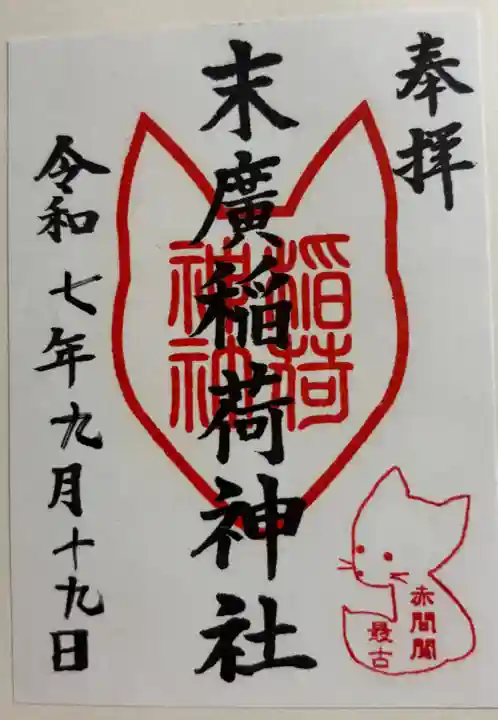 奉拝
末廣稲荷神社
稲荷
神社
令和七年九月十九日
赤間関
最古